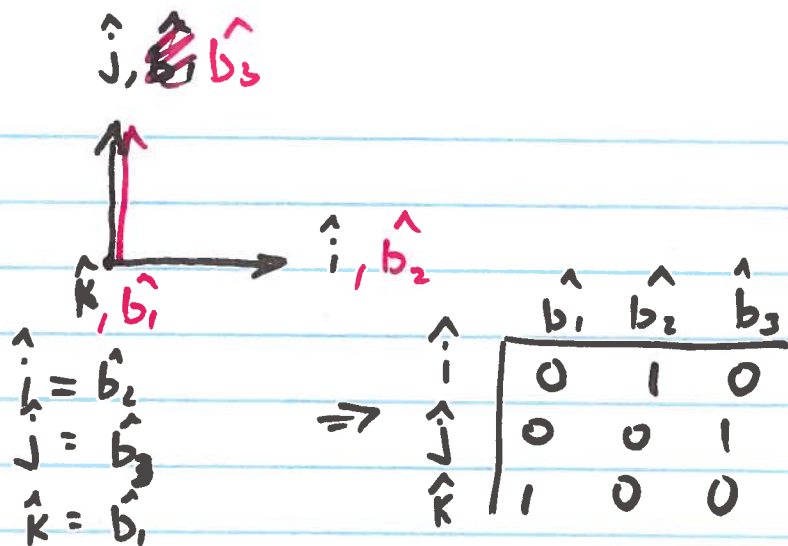 ĵ, b̂₃
î, b̂₂
k̂, b̂₁
î = b̂₂
ĵ = b̂₃
k̂ = b̂₁
⇒
b̂₁ b̂₂ b̂₃
î 0 1 0
ĵ 0 0 1
k̂ 1 0 0